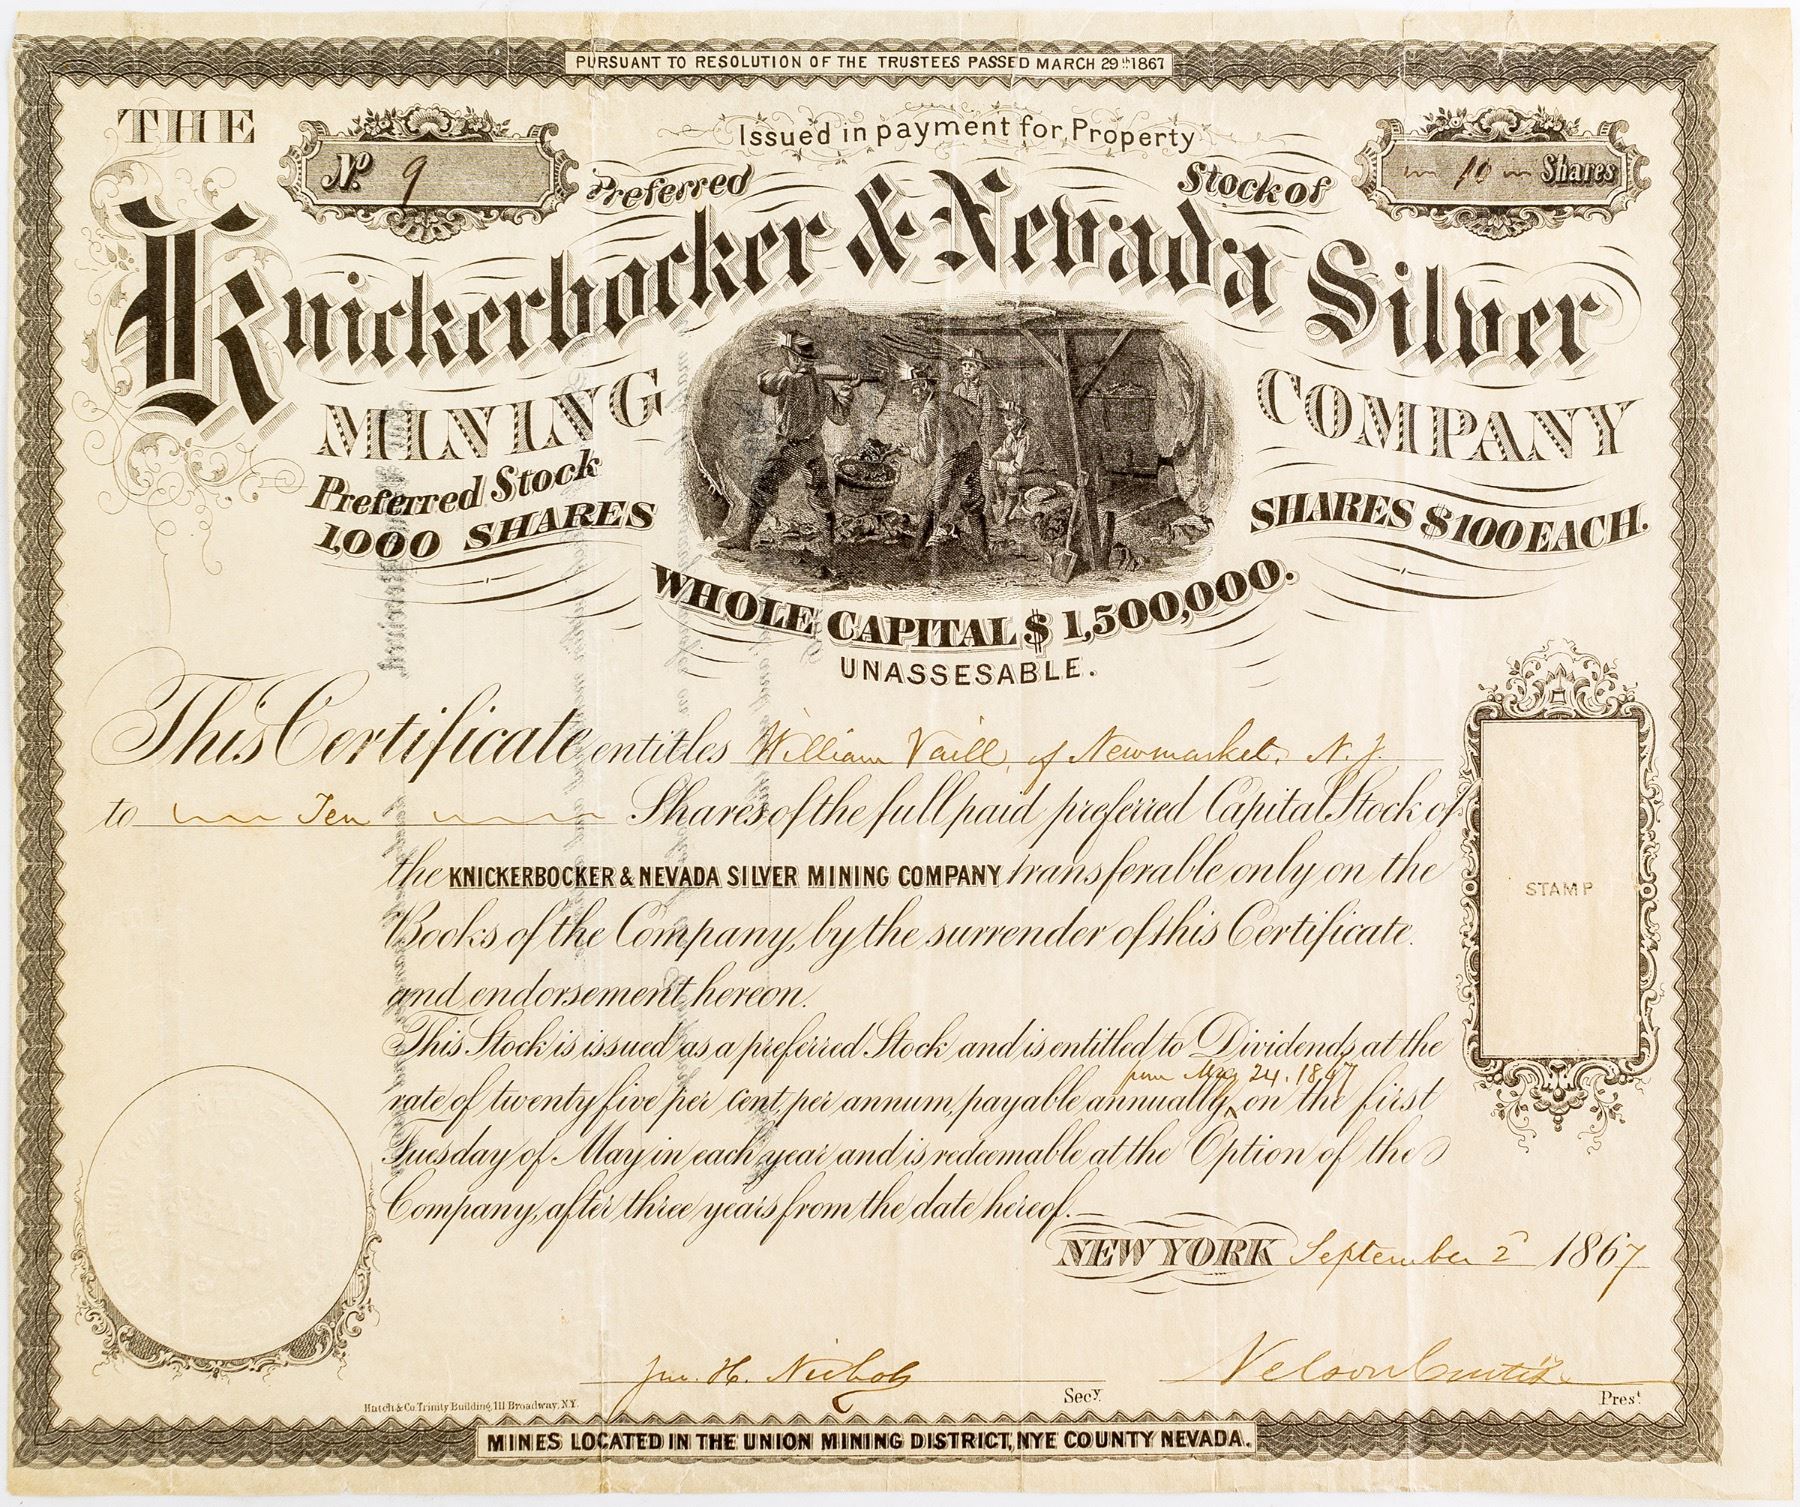 PURSUANT TO RESOLUTION OF THE TRUSTEES PASSED MARCH 29th 1867
THE
No. 9
Issued in payment for Property
10 Shares
Preferred Stock of
Knickerbocker & Nevada Silver
MINING COMPANY
Preferred Stock
1,000 SHARES
SHARES $100 EACH.
WHOLE CAPITAL $1,500,000.
UNASSESABLE.
This Certificate entitles William Vaill, of Newmarket, N. J.
to Ten Shares of the full paid preferred Capital Stock of
the KNICKERBOCKER & NEVADA SILVER MINING COMPANY transferable only on the
Books of the Company, by the surrender of this Certificate.
and endorsement hereon.
This Stock is issued as a preferred Stock and is entitled to Dividends at the
from May 24. 1867
rate of twenty five per cent, per annum, payable annually, on the first
Tuesday of May in each year and is redeemable at the Option of the
Company, after three years from the date hereof.
STAMP
NEW YORK September 2d 1867
Jno. H. Nichols Secy.
Nelson Curtis Prest.
Hatch & Co. Trinity Building, 111 Broadway, N.Y.
MINES LOCATED IN THE UNION MINING DISTRICT, NYE COUNTY NEVADA.